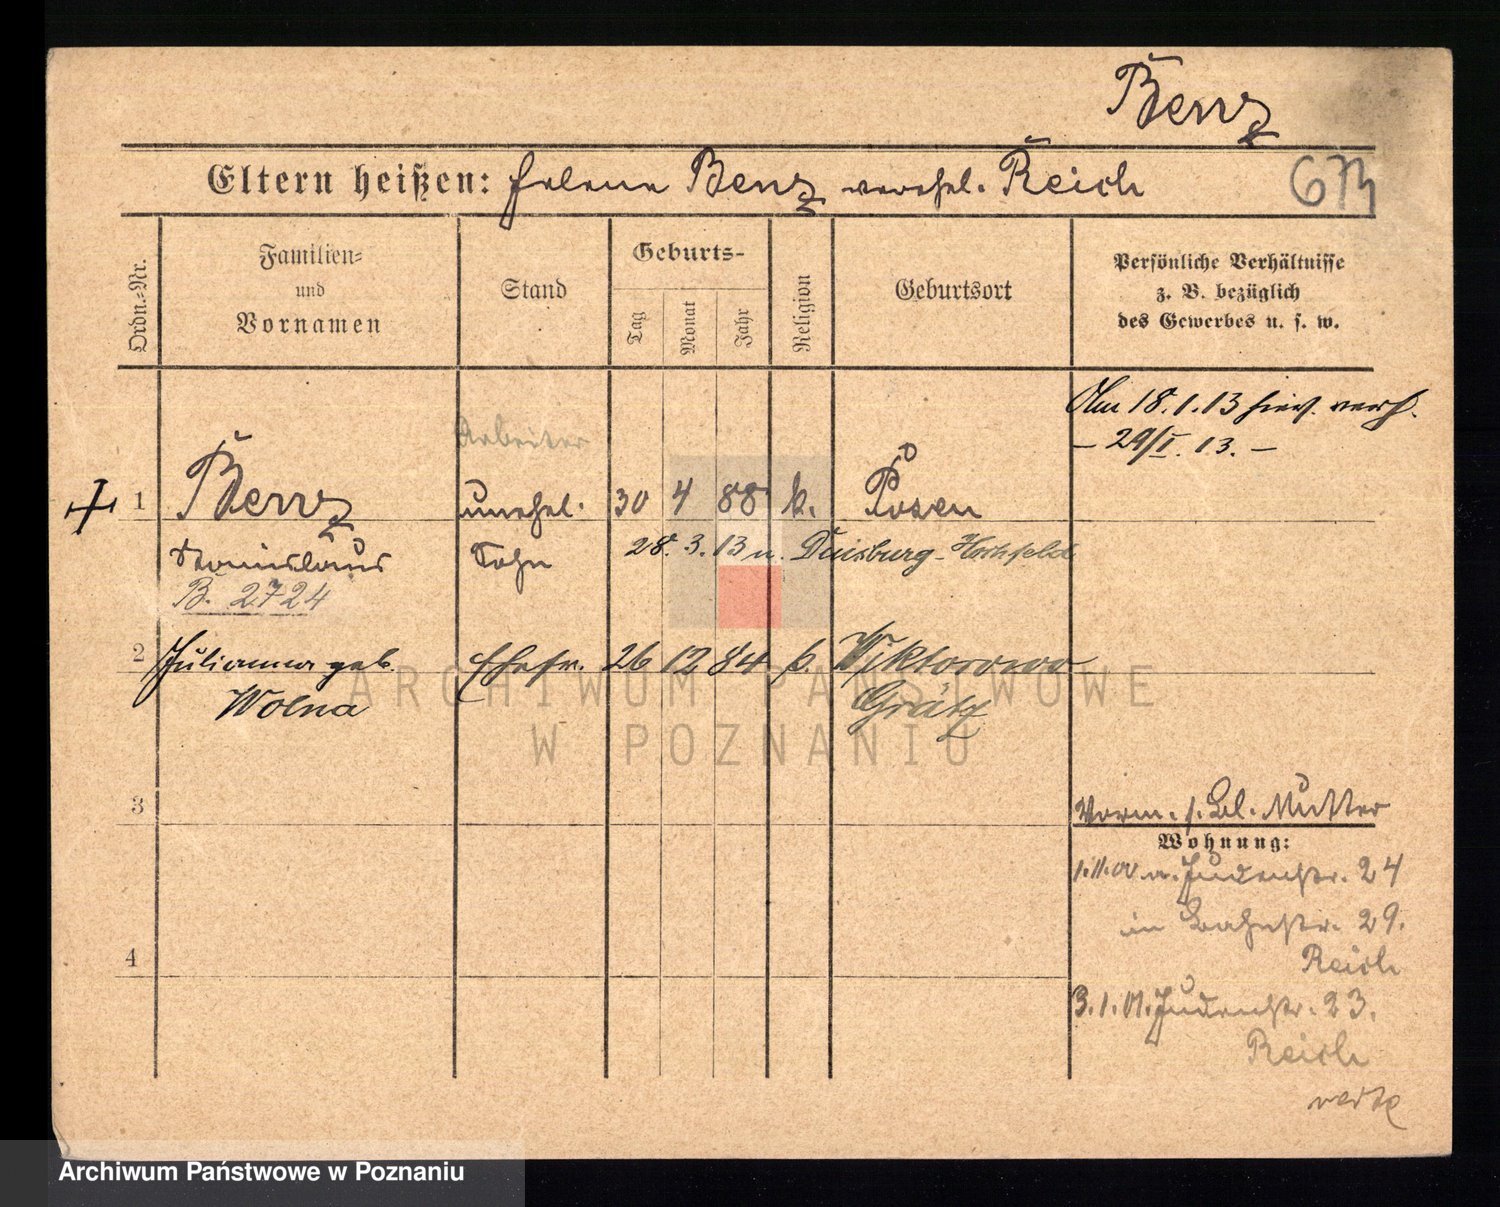 Benz
Eltern heißen: Helene Benz verehel. Reich
Ordn.=Nr.
Familien=
und
Vornamen
Stand
Geburts-
Tag
Monat
Jahr
Religion
Geburtsort
Persönliche Verhältnisse
z. B. bezüglich
des Gewerbes u. s. w.
Am 18.1.13 hier verh.
– 29/I. 13. –
Arbeiter
1 Benz unehel. 30 4 88 k. Posen
Stanislaus Sohn 28.3.13 n. Duisburg-Hochfeld
B. 2724
2 Julianna geb. Ehefr. 26 12 84 k. Wiktorowo
Wolna Grätz
3
Vorm. s. Bl. Mutter
Wohnung:
1.11.00 n. Judenstr. 24
in Bahnstr. 29.
Reich
4
3.1.01. Judenstr. 23.
Reich
ARCHIWUM PAŃSTWOWE
W POZNANIU
Archiwum Państwowe w Poznaniu